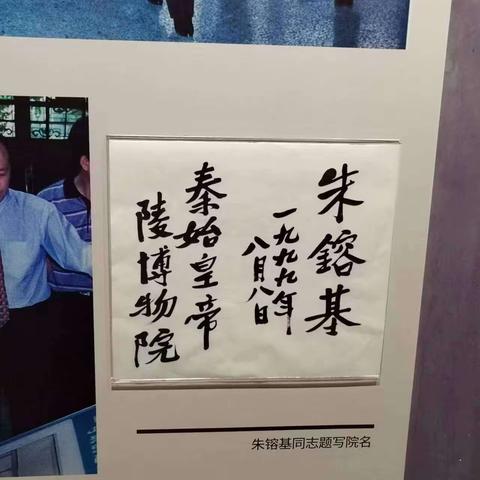 朱鎔基
一九九九年
八月八日
秦始皇帝
陵博物院
朱镕基同志题写院名